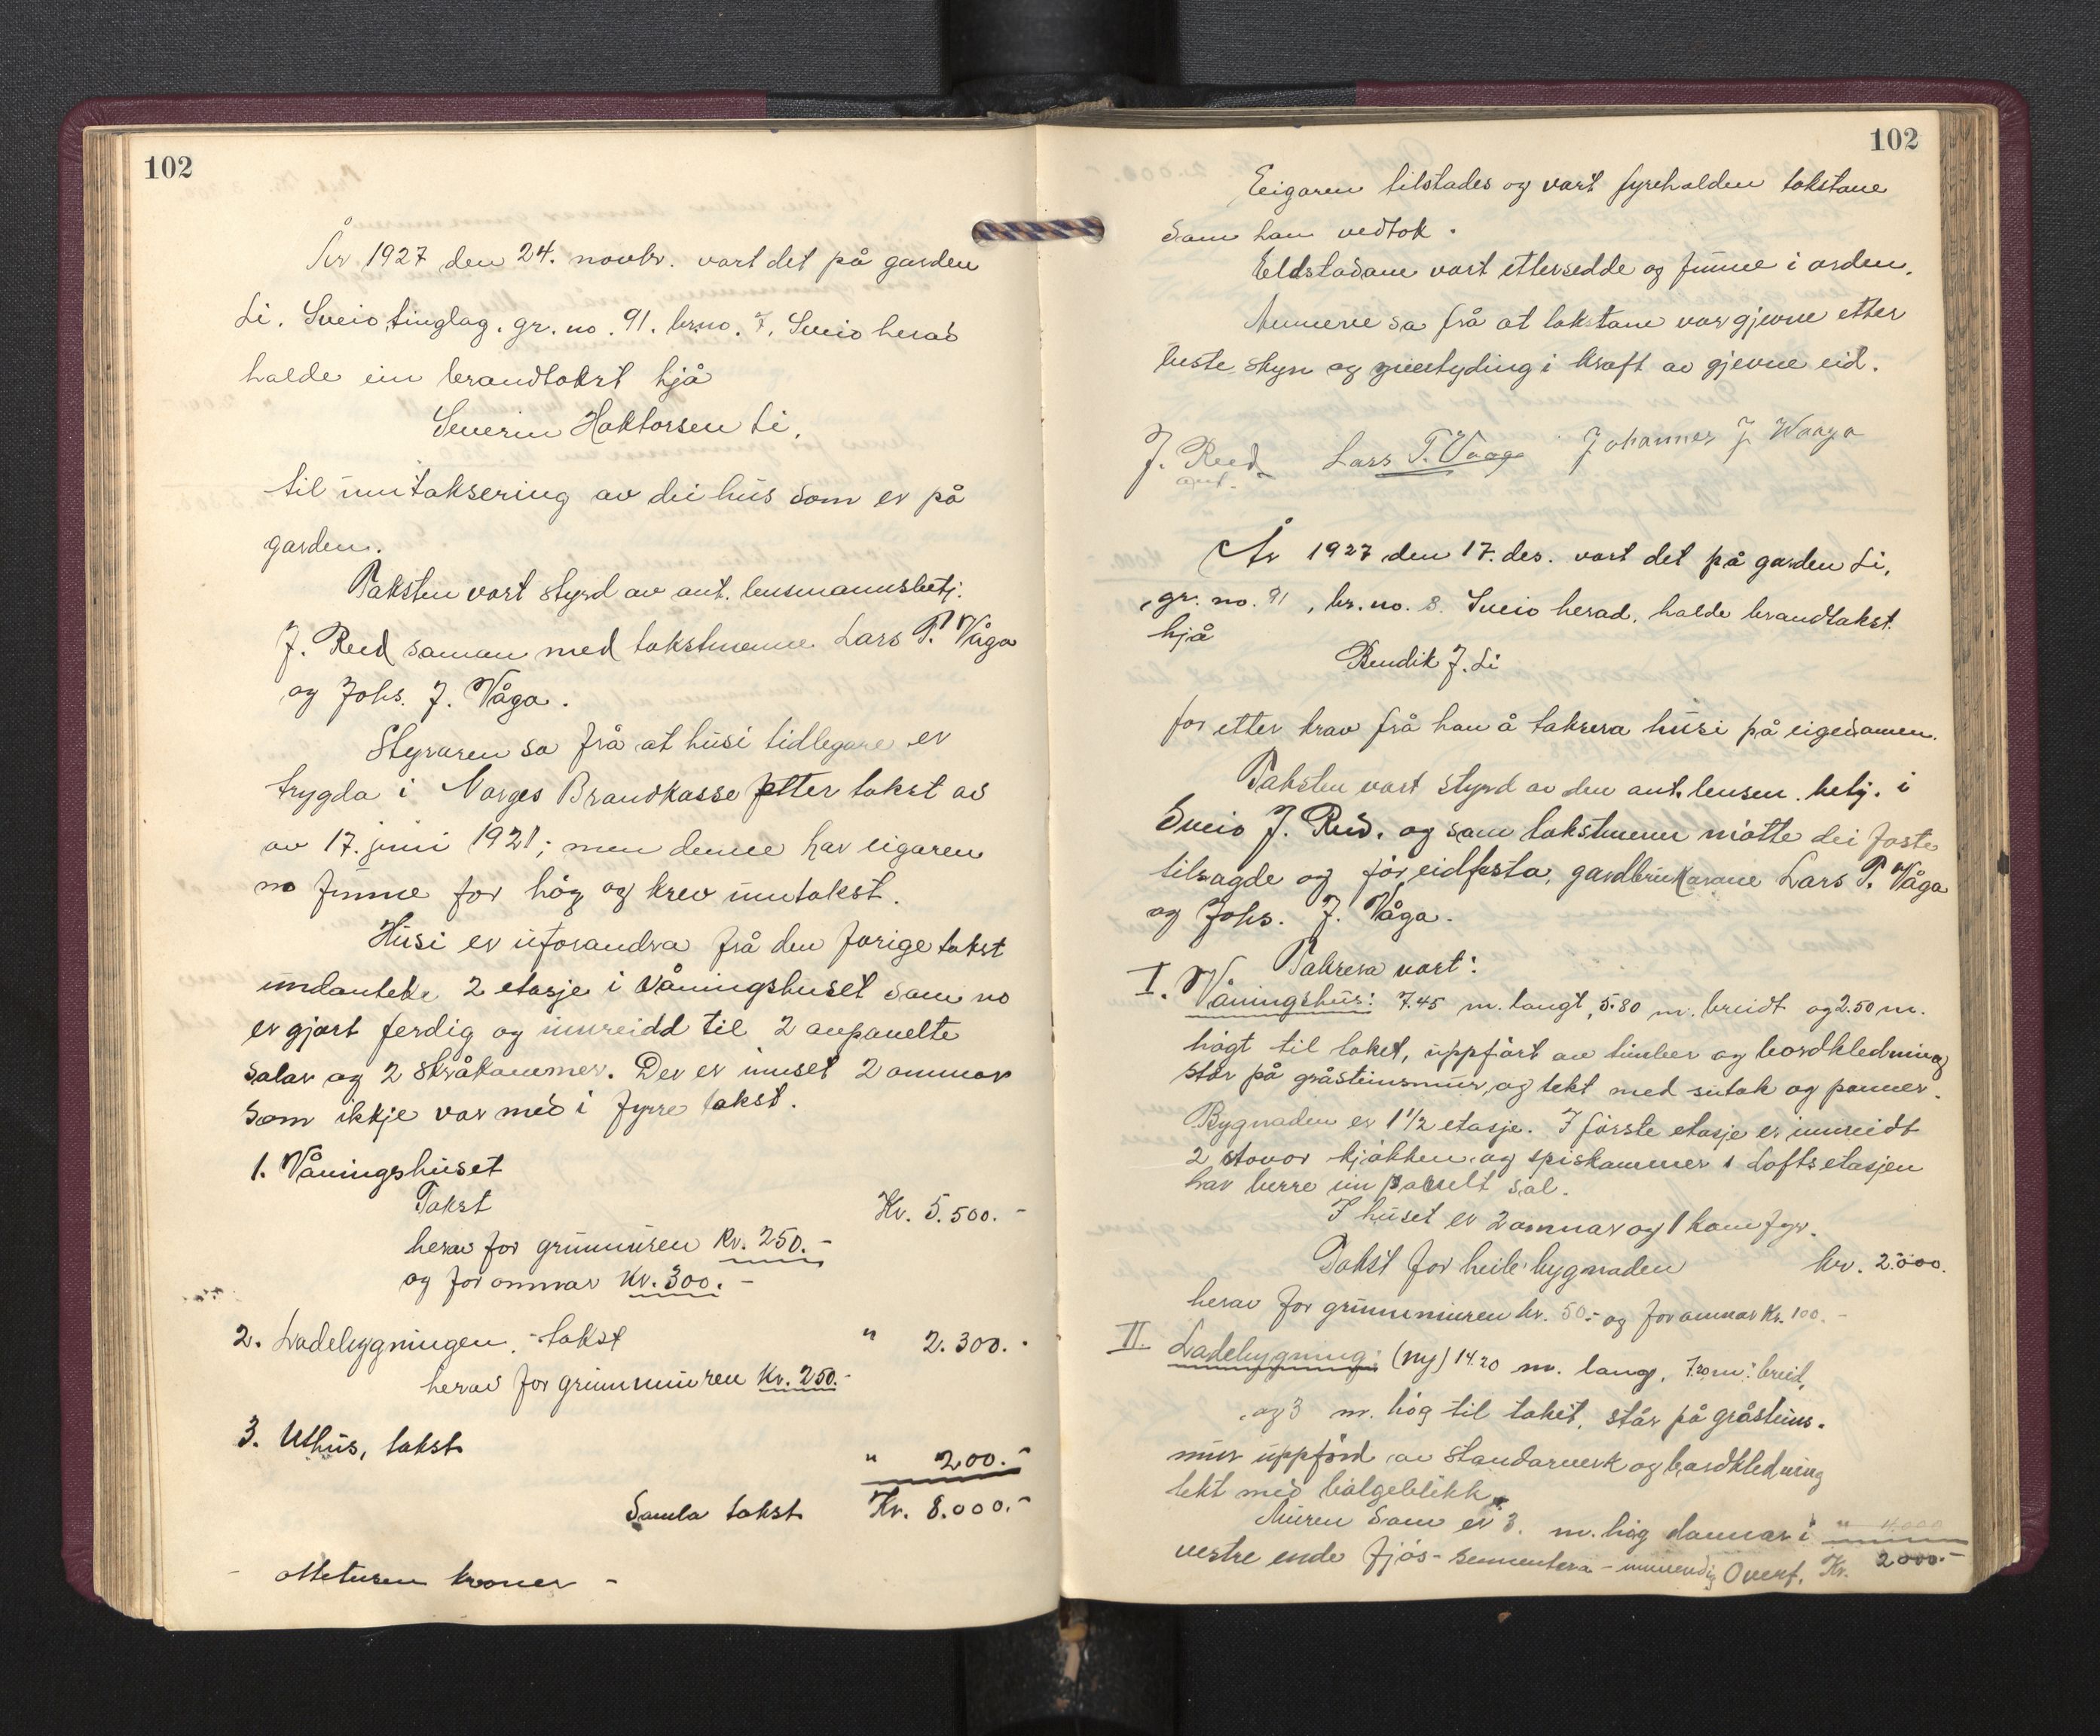 102
År 1927 den 24. novbr. vart det på garden
Li. Sveio tinglag. gr. no. 91. br.no. 7. Sveio herad
halde ein brandtakst hjå
Severin Haktorsen Li.
til umtaksering av dei hus som er på
garden.
Taksten vart styrd av ant. lensmannsbetj.
J. Reed saman med takstmenne Lars T. Våga
og Johs. J. Våga.
Styraren sa frå at husi tidlegare er
trygda i Norges Brandkasse etter takst av
av 17. juni 1921; men denne hav eigaren
no funne for høg og krev umtakst.
Husi er uforandra frå den forige takst
undanteke 2 etasje i Våningshuset som no
er gjort ferdig og innreidd til 2 anpanelte
salar og 2 skråkammer. Der er innset 2 omnar
som ikkje var med i fyrre takst.
1. Våningshuset
Takst Kr. 5.500.-
herav for grunmuren Kr. 250.-
og for omnar Kr. 300.-
2. Ladebygningen. - takst " 2.300.-
herav for grunnmuren Kr. 250.-
3. Uthus, takst " 200.-
Samla takst Kr. 8.000.-
- ottetusen kroner -
102
Eigaren tilstades og vart fyrehalden takstane
som han vedtok.
Eldstadane vart ettersedde og funne i orden.
Mennene sa frå at takstane var gjevne etter
beste skyn og i kraft av gjevne eid.
J. Reed Lars T. Vaage Johannes J. Waaga
ant.
År 1927 den 17. des. vart det på garden Li,
gr. no. 91, br. no. 8. Sveio herad, halde brandtakst
hjå
Bendik J. Li
for etter krav frå han å taksera husi på eigedomen.
Taksten vart styrd av den ant. lensm. betj. i
Sveio J. Reed. og som takstmenn møtte dei faste
tilsagde og før eidfesta, gardbrukarane Lars T. Våga
og Johs. J. Våga.
Taksera vart:
I. Våningshus: 7.45 m. langt, 5.80 m. breidt og 2.50 m.
høgt til taket, uppført av timber og bordkledning
står på gråsteinsmur, og tekt med sutak og panner.
Bygnaden er 1 1/2 etasje. I første etasje er innreidt
2 stovor kjøkken og spiskammer i Loftsetasjen
hav berre ein panelt sal.
I huset er 2 omnar og 1 komfyr.
Takst for heile bygnaden kr. 2000.
herav for grunnmuren kr. 50.- og for omnar Kr. 100.-
II. Ladebygning: (ny) 14.20 m. lang, 7.20 m. breid,
og 3 m. høg til taket, står på gråsteins-
mur uppførd av standarverk og bordkledning
tekt med bølgeblikk.
Muren som er 3. m. høg dannar i " 4.000
vestre ende fjøs - sementera - innvendig Overf. Kr. 2000.-